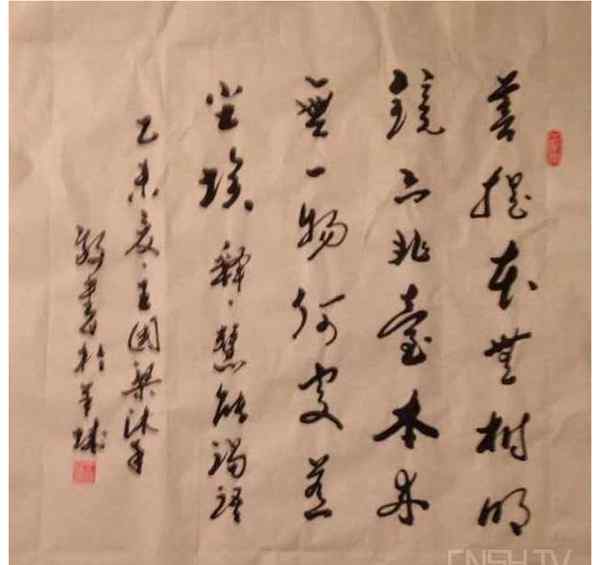 菩提本無樹明
鏡亦非臺本來
無一物何處惹
尘埃 釋慧能偈語
乙未夏 國 沐手
敬書於羊城